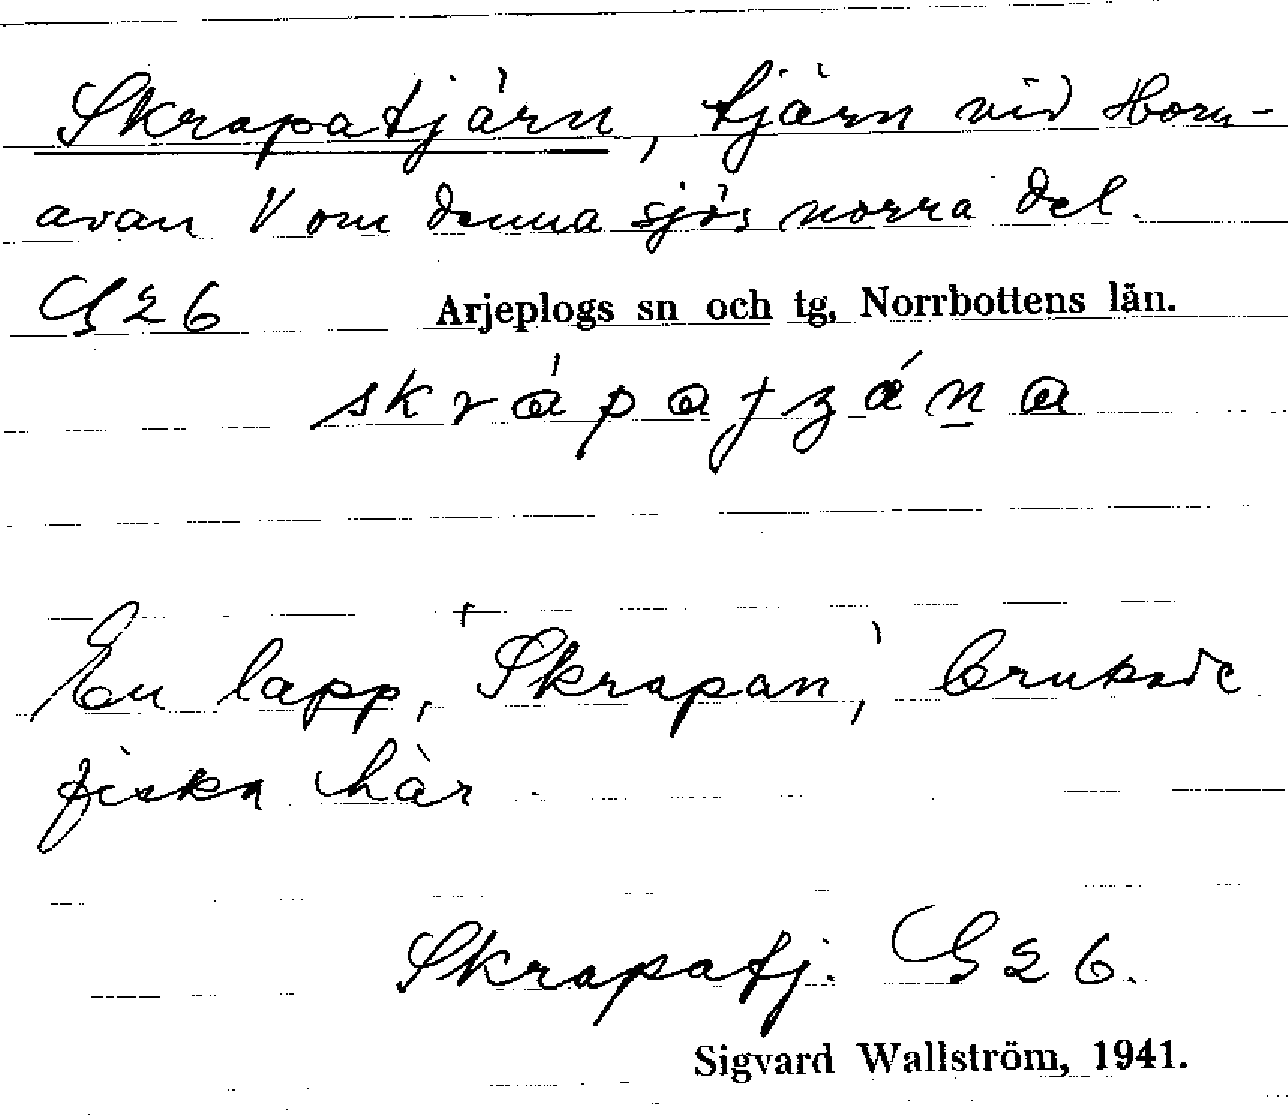 Skrapatjärn, tjärn vid Horn-
avan V om denna sjös norra del.
G26 Arjeplogs sn och tg, Norrbottens län.
En lapp, "Skrapan", brukade
fiska här
Skrapatj. G26.
Sigvard Wallström, 1941.